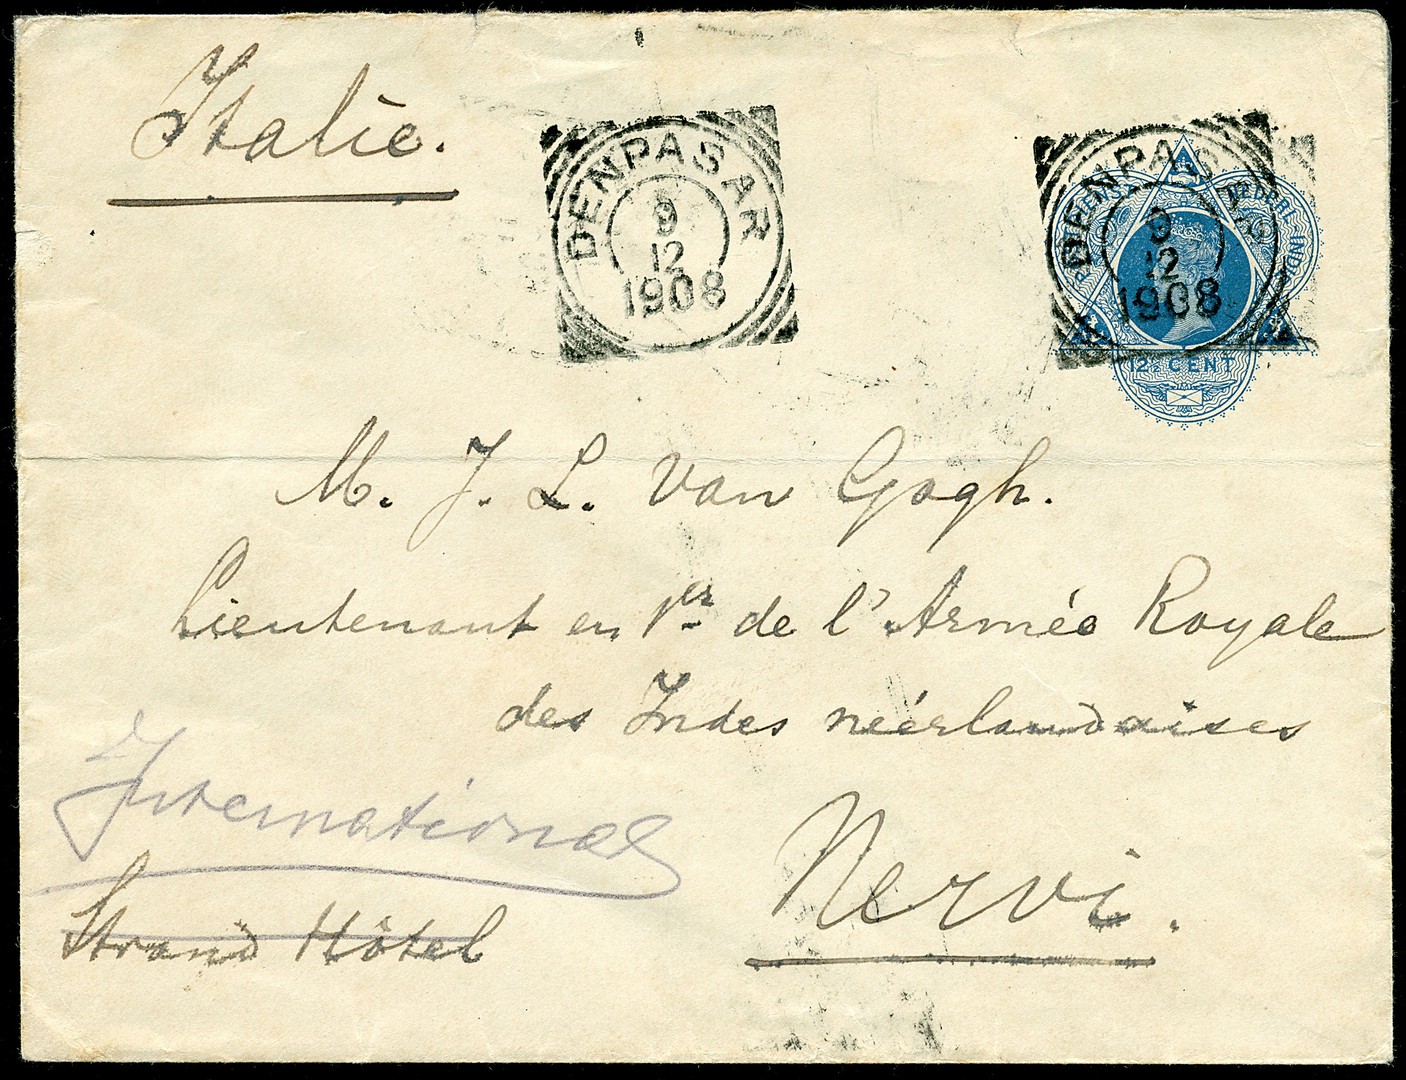 Italie.
DENPASAR
9
12
1908
DENPASAR
9
12
1908
12½ CENT
M. J. L. Van Gogh.
Lieutenant en 1er de l'Armée Royale
des Indes néérlandaises
International
Strand Hôtel
Nervi.